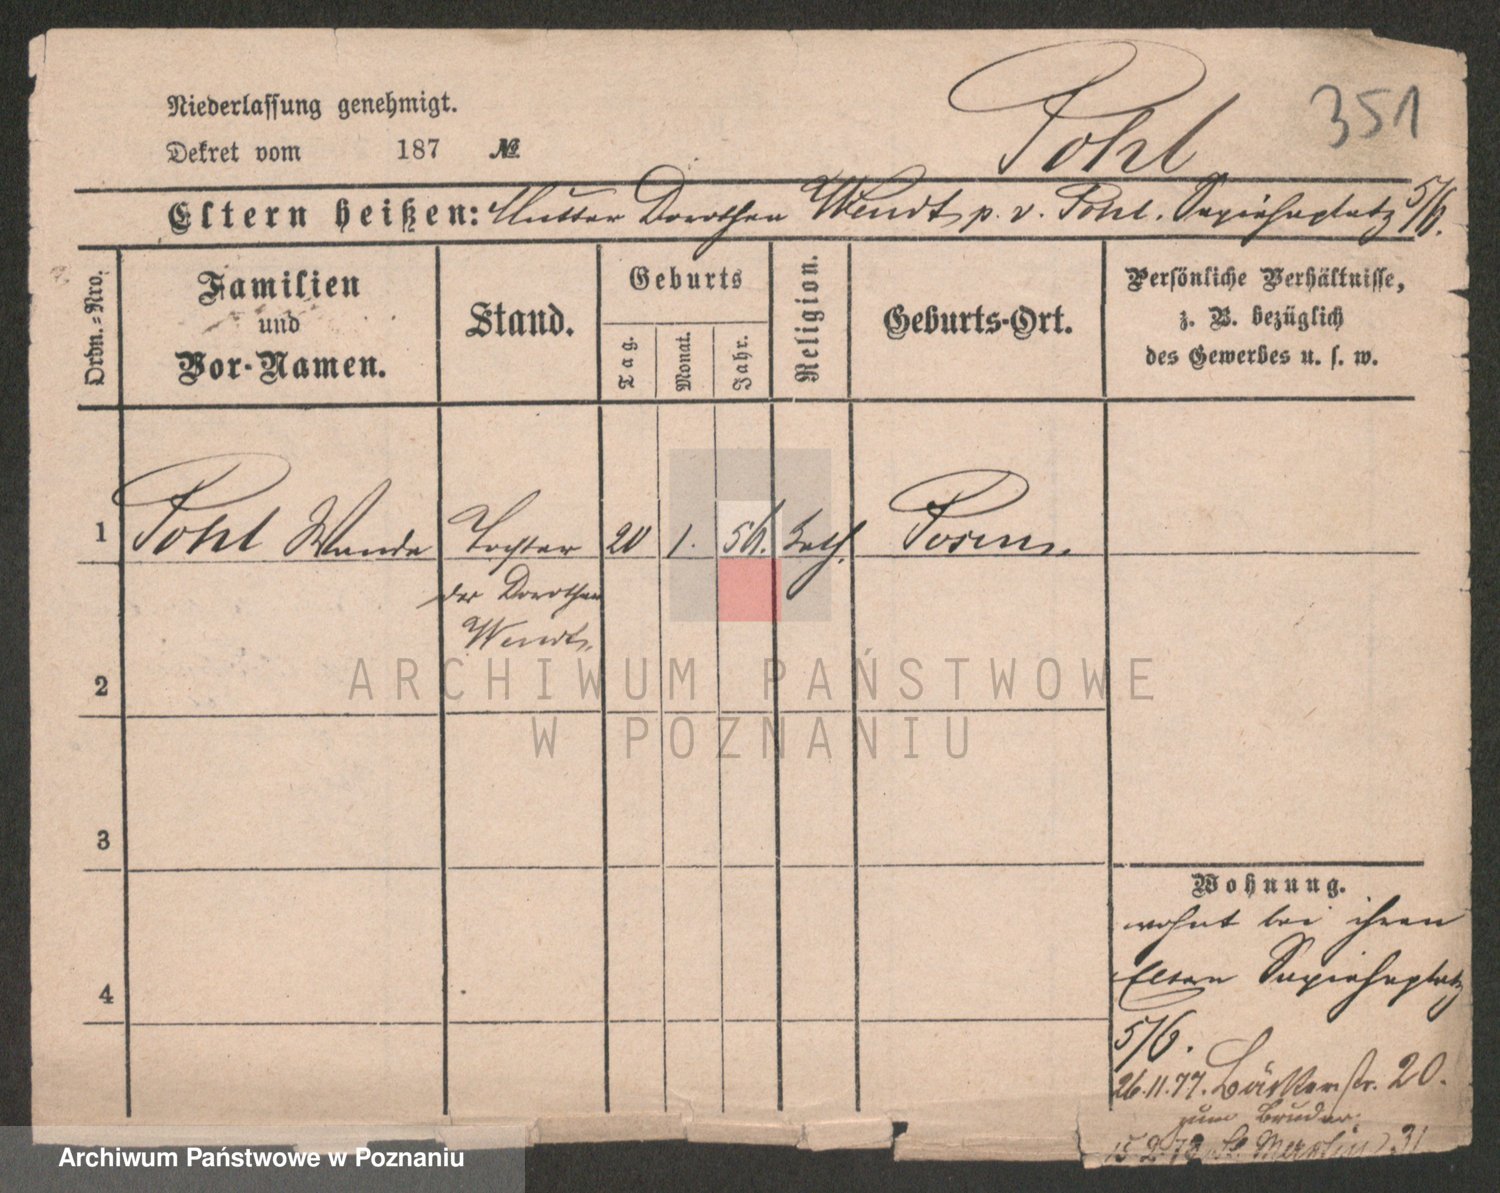 Pohl
351
Niederlassung genehmigt.
Dekret vom 187 №
Eltern heißen: Mutter Dorothea Wendt p. v. Pohl. Sapiehaplatz 5/6.
Ordn.-Nro.
Familien
und
Vor-Namen.
Stand.
Geburts
Tag.
Monat.
Jahr.
Religion.
Geburts-Ort.
Persönliche Verhältnisse,
z. B. bezüglich
des Gewerbes u. s. w.
1 Pohl Wanda Tochter 20 1. 56. kath. Posen.
der Dorothea
Wendt.
2
ARCHIWUM PAŃSTWOWE
W POZNANIU
3
4
Wohnung.
wohnt bei ihren
Eltern Sapiehaplatz
5/6.
26.11.77. Bäckerstr. 20.
zum Bruder.
15 2 78 St. Martin 31
Archiwum Państwowe w Poznaniu